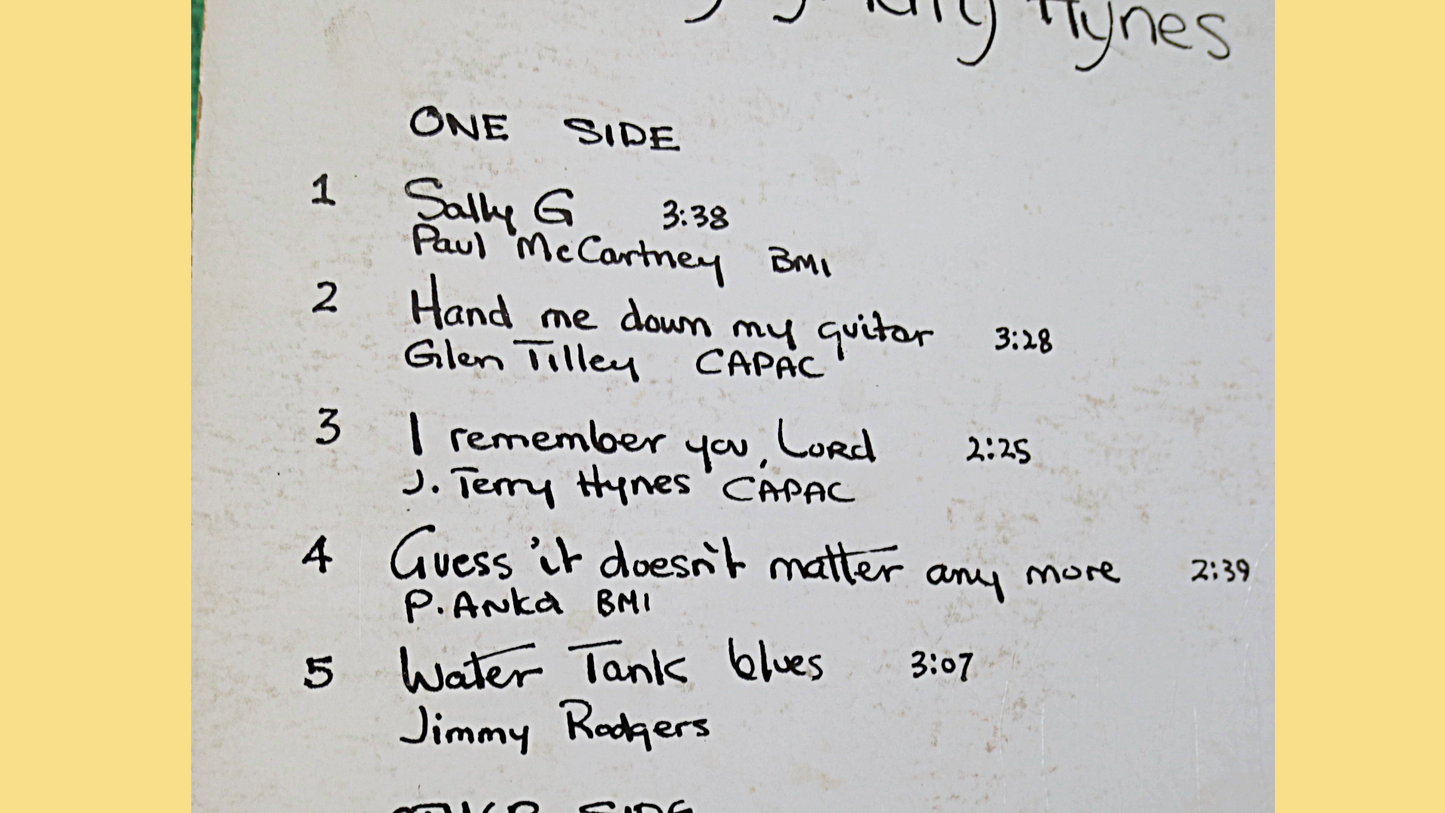 Hynes
ONE SIDE
1 Sally G 3:38
Paul McCartney BMI
2 Hand me down my guitar 3:28
Glen Tilley CAPAC
3 I remember you, Lord 2:25
J. Terry Hynes CAPAC
4 Guess it doesn't matter any more 2:39
P. Anka BMI
5 Water Tank blues 3:07
Jimmy Rodgers
SIDE